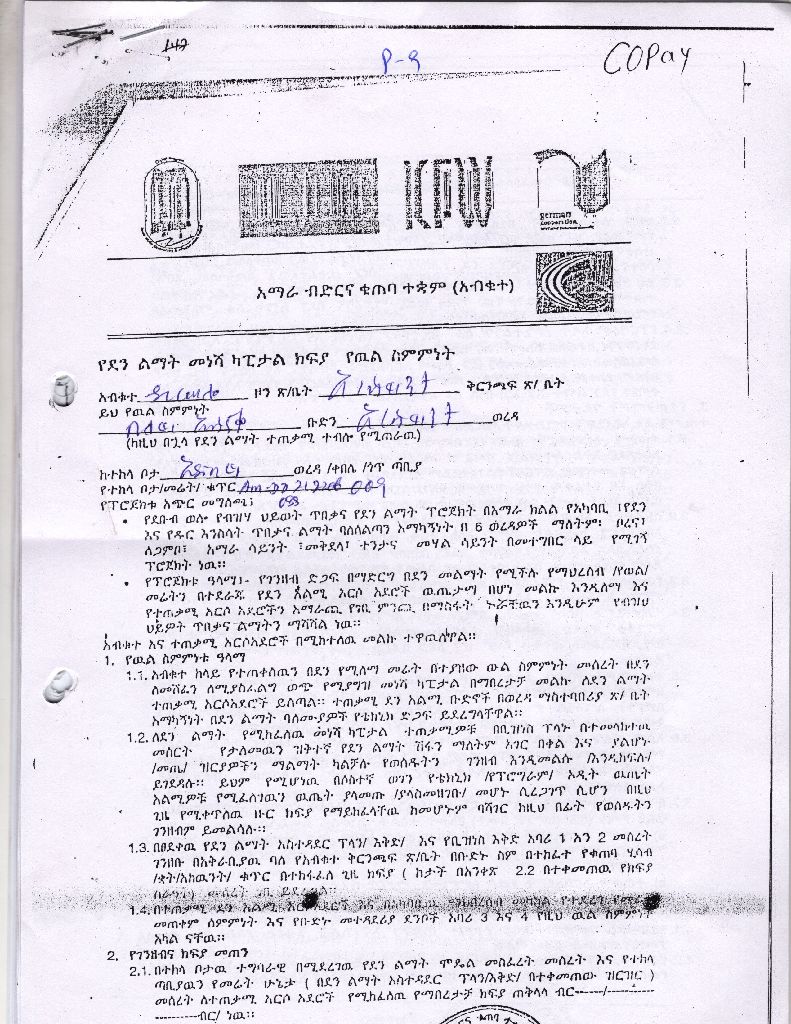 147
P-9
COPay
KFW
german
cooperation
አማራ ብድርና ቁጠባ ተቋም (አብቁተ)
የደን ልማት መነሻ ካፒታል ክፍያ የዉል ስምምነት
አብቁተ ዞን ጽ/ቤት ቅርንጫፍ ጽ/ ቤት
ይህ የዉል ስምምነት
ቡድን ወረዳ
(ከዚህ በኋላ የደን ልማት ተጠቃሚ ተብሎ የሚጠራዉ)
ከተከላ ቦታ ወረዳ /ቀበሌ /ጎጥ ጣቢያ
የተከላ ቦታ/መሬት/ ቁጥር 009
የፕሮጀክቱ አጭር መግለጫ፤ 093
• የደቡብ ወሎ የብዝሃ ህይወት ጥበቃና የደን ልማት ፕሮጀክት በአማራ ክልል የአካባቢ ፣የደን
እና የዱር እንስሳት ጥበቃና ልማት ባለስልጣን አማካኝነት በ 6 ወረዳዎች ማለትም፡ ቦረና፣
ለጋምቦ፣ አማራ ሳይንት ፣መቅደላ፣ ተንታና መሃል ሳይንት በመተግበር ላይ የሚገኝ
ፕሮጀክት ነዉ።
• የፕሮጀክቱ ዓላማ፤- የገንዘብ ድጋፍ በማድርግ በደን መልማት የሚችሉ የማህረሰብ /የወል/
መሬትን በተደራጁ የደን አልሚ አርሶ አደሮች ዉጤታማ በሆነ መልኩ እንዲለማ እና
የተጠቃሚ አርሶ አደሮችን አማራጭ የገቢ ምንጭ በማስፋት ኑሯቸዉን እንዲሁም የብዝሃ
ህይዎት ጥበቃና ልማትን ማሻሻል ነዉ።
አብቁተ እና ተጠቃሚ አርሶአደሮች በሚከተለዉ መልኩ ተዋዉለዋል።
1. የዉል ስምምነቱ ዓላማ
1.1. አብቁተ ከላይ የተጠቀሰዉን በደን የሚለማ መሬት በተያዘው ውል ስምምነት መሰረት በደን
ለመሸፈን ለሚያስፈልግ ወጭ የሚያግዝ መነሻ ካፒታል በማበረታቻ መልኩ ለደን ልማት
ተጠቃሚ አርሶአደሮች ይሰጣል። ተጠቃሚ ደን አልሚ ቡድኖች በወረዳ ማስተባበሪያ ጽ/ ቤት
አማካኝነት በደን ልማት ባለሙያዎች የቴክኒክ ድጋፍ ይደረግላቸዋል።
1.2. ለደን ልማት የሚከፈለዉ መነሻ ካፒታል ተጠቃሚዎቹ በቢዝነስ ፕላኑ በተመለከተዉ
መሰርት የታለመዉን ዝቅተኛ የደን ልማት ሽፋን ማለትም አገር በቀል እና ያልሆኑ
/መጤ/ ዝርያዎችን ማልማት ካልቻሉ የወሰዱትን ገንዘብ እንዲመልሱ /እንዲከፍሉ/
ይገደዳሉ። ይህም የሚሆነዉ በሶስተኛ ወገን የቴክኒክ /የፕሮግራም/ ኦዲት ዉጤት
አልሚዎቹ የሚፈለገዉን ዉጤት ያላመጡ /ያላስመዘገቡ/ መሆኑ ሲረጋገጥ ሲሆን በዚህ
ጊዜ የሚቀጥለዉ ዙር ክፍያ የማይከፈላቸዉ ከመሆኑም ባሻገር ከዚህ በፊት የወሰዱትን
ገንዘብም ይመልሳሉ።
1.3. በፀደቀዉ የደን ልማት አስተዳደር ፕላን/ እቅድ/ እና የቢዝነስ እቅድ አባሪ 1 እን 2 መሰረት
ገንዘቡ በአቅራቢያዉ ባለ የአብቁተ ቅርንጫፍ ጽ/ቤት በቡድኑ ስም በተከፈተ የቁጠባ ሂሳብ
/ቋት/አካዉንት/ ቁጥር በተከፋፈለ ጊዜ ክፍያ ( ከታች በአንቀጽ 2.2 በተቀመጠዉ የክፍያ
ስራዓት) መሰረት ገቢ ይደረጋል።
1.4. በተጠቃሚ ደን አልሚ አርሶአደሮች እና በአካባቢዉ ማህበረሰብ መካከል የተደረገ የመሬት
መጠቀም ስምምነት እና የቡድኑ መተዳደሪያ ደንቦች አባሪ 3 እና 4 የዚህ ዉል ስምምነት
አካል ናቸዉ።
2. የገንዘብና ክፍያ መጠን
2.1. በተከላ ቦታዉ ተግባራዊ በሚደረገዉ የደን ልማት ሞዴል መስፈረት መሰረት እና የተከላ
ጣቢያዉን የመሬት ሁኔታ ( በደን ልማት አስተዳደር ፕላን/እቅድ/ በተቀመጠው ዝርዝር )
መሰረት ለተጠቃሚ አርሶ አደሮች የሚከፈለዉ የማበረታቻ ክፍያ ጠቅላላ ብር------/----------
----------ብር/ ነዉ።